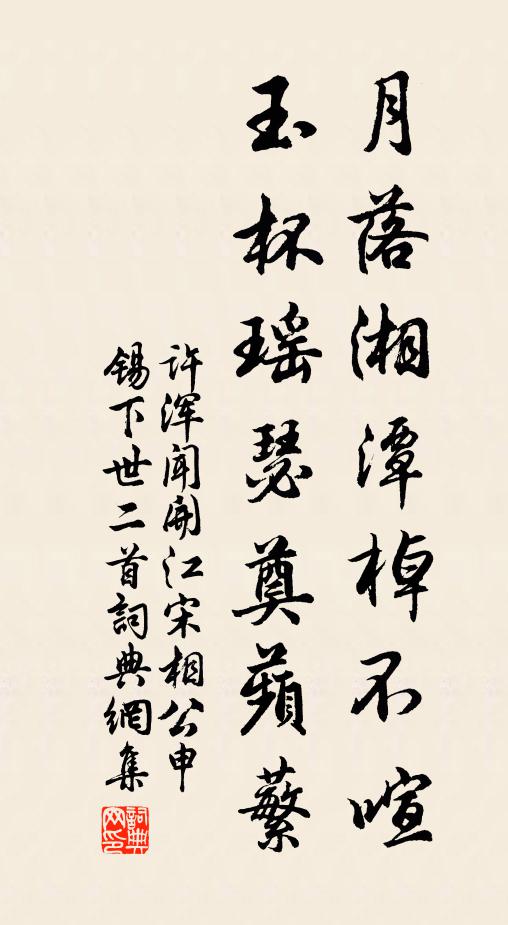 月落湘潭棹不喧
玉杯瑶瑟奠蘋蘩
许浑闻開江宋相公申
锡下世二首詞典網集
詞典
网印